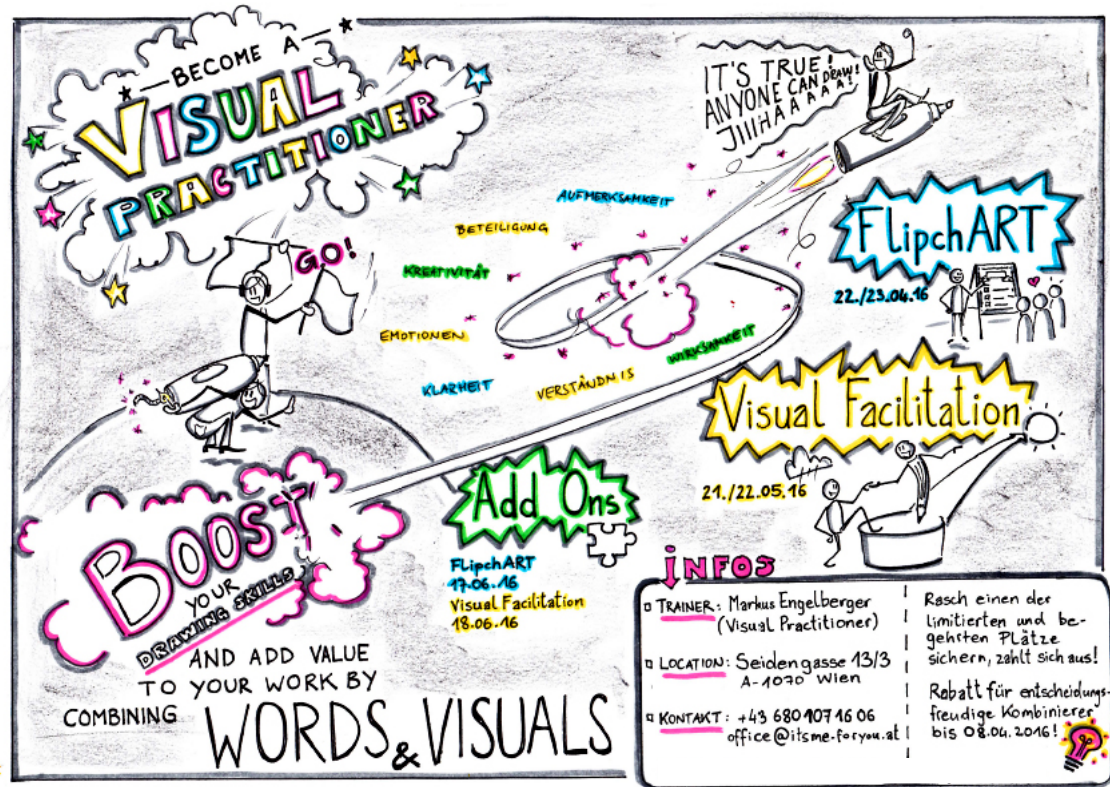 BECOME A
VISUAL
PRACTITIONER
GO!
IT'S TRUE!
ANYONE CAN DRAW!
JIIIHAAAAA!
AUFMERKSAMKEIT
BETEILIGUNG
KREATIVITÄT
EMOTIONEN
KLARHEIT
VERSTÄNDNIS
WIRKSAMKEIT
FlipchART
22./23.04.16
Visual Facilitation
21./22.05.16
BOOST
YOUR
DRAWING SKILLS
AND ADD VALUE
TO YOUR WORK BY
COMBINING WORDS & VISUALS
Add Ons
FlipchART
17.06.16
Visual Facilitation
18.06.16
INFOS
TRAINER: Markus Engelberger
(Visual Practitioner)
LOCATION: Seidengasse 13/3
A-1070 Wien
KONTAKT: +43 680 107 16 06
office@itsme-foryou.at
Rasch einen der
limitierten und be-
gehrten Plätze
sichern, zahlt sich aus!
Rabatt für entscheidungs-
freudige Kombinierer
bis 08.04.2016!